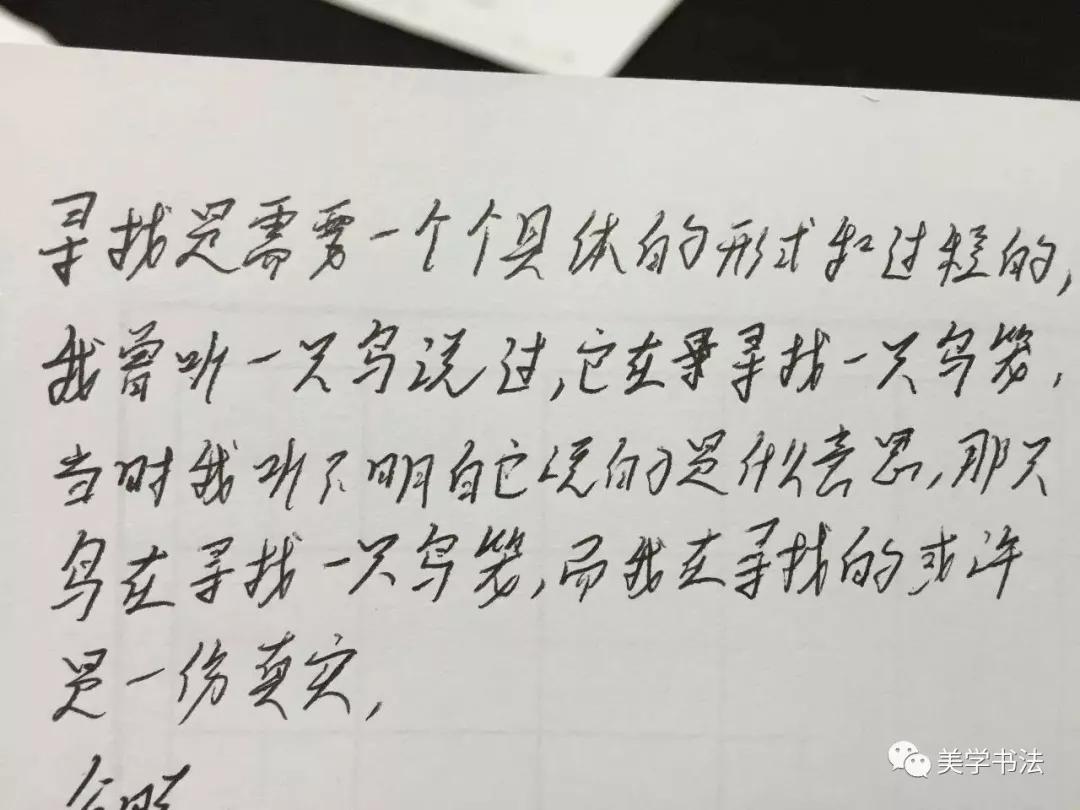 寻找是需要一个个具体的形式和过程的,
我曾听一只鸟说过,它在寻找一只鸟笼,
当时我听不明白它说的是什么意思,那只
鸟在寻找一只鸟笼,而我在寻找的或许
是一份真实,
美学书法